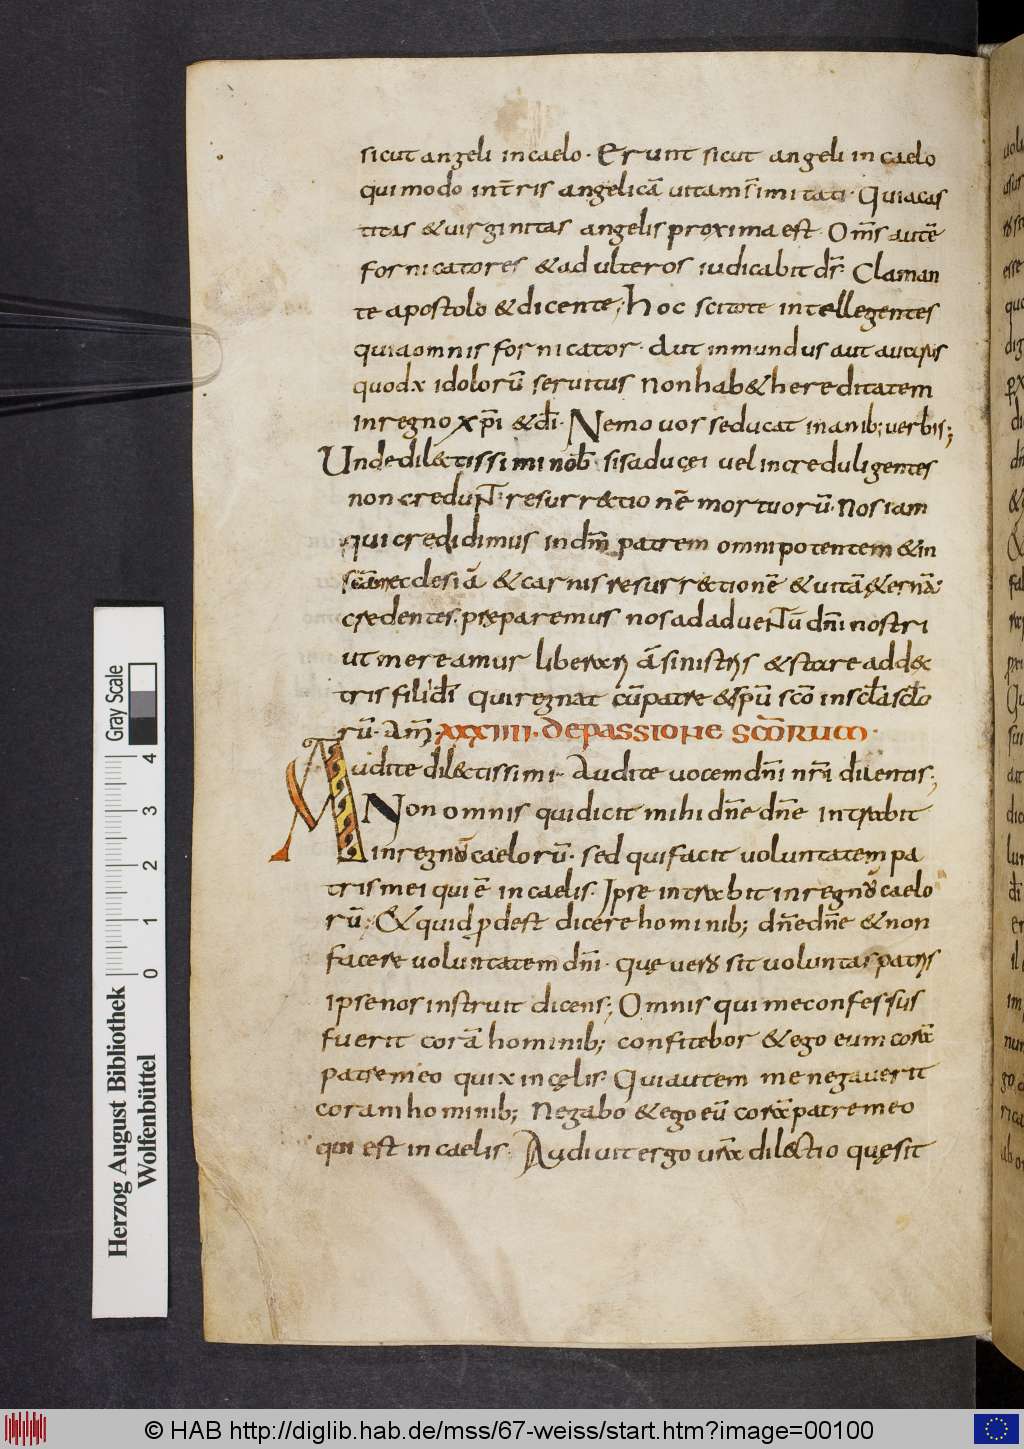 sicut angeli in caelo · Erunt sicut angeli in caelo
qui modo in t̄ris angelicā uitam s̄ imitati · Quia cas
titas & uirginitas angelis proxima est · Om̄s autē
fornicatores & adulteros iudicabit d̄s · Claman
te apostolo & dicente ; Hoc scitote intellegentes
quia omnis fornicator · aut inmundus aut auarus
quod idolorū seruitus non hab& hereditatem
in regno xp̄i & d̄i · Nemo uos seducat inanib; uerbis ;
Unde dil&tissimi nob̄ si saducei uel increduli gentes
non credunt resurr&tionē mortuorū · Nos iam
qui credidimus in dm̄ patrem omnipotentem & in
sc̄am ecclesiā & carnis resurr&tionē & uitā &ernā
credentes · preparemus nos ad aduentū dn̄i nostri
ut mereamur liberari ā sinistris & stare ad d&
tris filii d̄i qui regnat cū patre & sp̄u sc̄o in sc̄la sc̄lo
rū · am̄ · XXXIIII · DE PASSIONE SC̄ORUM ·
Audite dil&tissimi · Audite uocem dn̄i nr̄i dicentis ;
Non omnis qui dicit mihi dn̄e dn̄e intrabit
in regnū caelorū · sed qui facit uoluntatem pa
tris mei qui ē in caelis · Ipse intrabit in regnū caelo
rū ; Et quid p̱dest dicere hominib; dn̄e dn̄e & non
facere uoluntatem dn̄i · Quę uero sit uoluntas patris
ipse nos instruit dicens ; Omnis qui me confessus
fuerit corā hominib; confitebor & ego eum corā
patre meo qui in cęlis · Qui autem me negauerit
coram hominib; Negabo & ego eū corā patre meo
qui est in caelis · Audiuit ergo ur̄a dil&tio quę sit
Gray Scale
4
3
2
1
0
Herzog August Bibliothek
Wolfenbüttel
© HAB http://diglib.hab.de/mss/67-weiss/start.htm?image=00100